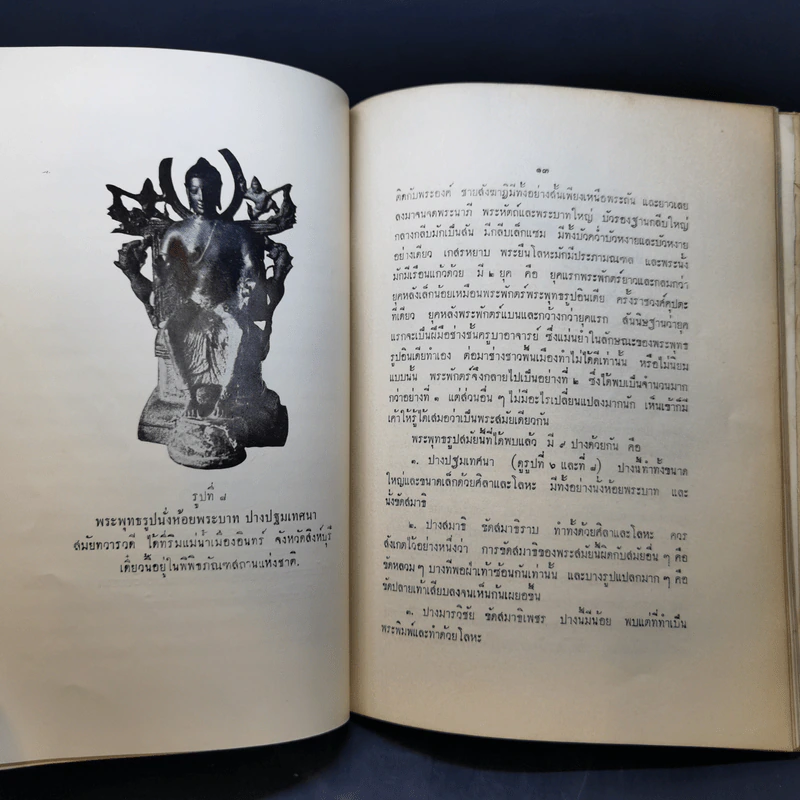 รูปที่ ๘
พระพุทธรูปนั่งห้อยพระบาท ปางปฐมเทศนา
สมัยทวารวดี ได้ที่ริมแม่น้ำเมืองอินทร์ จังหวัดสิงห์บุรี
เดี๋ยวนี้อยู่ในพิพิธภัณฑสถานแห่งชาติ.
๑๓
ติดกับพระองค์ ชายสังฆาฏิมีทั้งอย่างสั้นเพียงเหนือพระถัน และยาวเลย
ลงมาจนจดพระนาภี พระหัตถ์และพระบาทใหญ่ บัวรองฐานกลีบใหญ่
กลางกลีบมักเป็นสัน มีกลีบเล็กแซม มีทั้งบัวคว่ำบัวหงายและบัวหงาย
อย่างเดียว เกสรหยาบ พระยืนโลหะมักมีประภามณฑล และพระนั่ง
มักมีเรือนแก้วด้วย มี ๒ ยุค คือ ยุคแรกพระพักตร์ยาวและกลมกว่า
ยุคหลังเล็กน้อยเหมือนพระพักตร์พระพุทธรูปอินเดีย ครั้งราชวงศ์คุปตะ
ทีเดียว ยุคหลังพระพักตร์แบนและกว้างกว่ายุคแรก สันนิษฐานว่ายุค
แรกจะเป็นฝีมือช่างชั้นครูบาอาจารย์ ซึ่งแม่นยำในลักษณะของพระพุทธ
รูปอินเดียทำเอง ต่อมาช่างชาวพื้นเมืองทำไม่ได้ดีเท่านั้น หรือไม่นิยม
แบบนั้น พระพักตร์จึงกลายไปเป็นอย่างที่ ๒ ซึ่งได้พบเป็นจำนวนมาก
กว่าอย่างที่ ๑ แต่ส่วนอื่น ๆ ไม่มีอะไรเปลี่ยนแปลงมากนัก เห็นเข้าก็มี
เค้าให้รู้ได้เสมอว่าเป็นพระสมัยเดียวกัน
พระพุทธรูปสมัยนี้ที่ได้พบแล้ว มี ๙ ปางด้วยกัน คือ
๑. ปางปฐมเทศนา (ดูรูปที่ ๖ และที่ ๘) ปางนี้ทำทั้งขนาด
ใหญ่และขนาดเล็กด้วยศิลาและโลหะ มีทั้งอย่างนั่งห้อยพระบาท และ
นั่งขัดสมาธิ
๒. ปางสมาธิ ขัดสมาธิราบ ทำทั้งด้วยศิลาและโลหะ ควร
สังเกตไว้อย่างหนึ่งว่า การขัดสมาธิของพระสมัยนี้ผิดกับสมัยอื่น ๆ คือ
ขัดหลวม ๆ บางทีพอฝ่าเท้าซ้อนกันเท่านั้น และบางรูปแปลกมาก ๆ คือ
ขัดปลายเท้าเสียบลงจนเห็นก้นเผยอขึ้น
๓. ปางมารวิชัย ขัดสมาธิเพชร ปางนี้มีน้อย พบแต่ที่ทำเป็น
พระพิมพ์และทำด้วยโลหะ